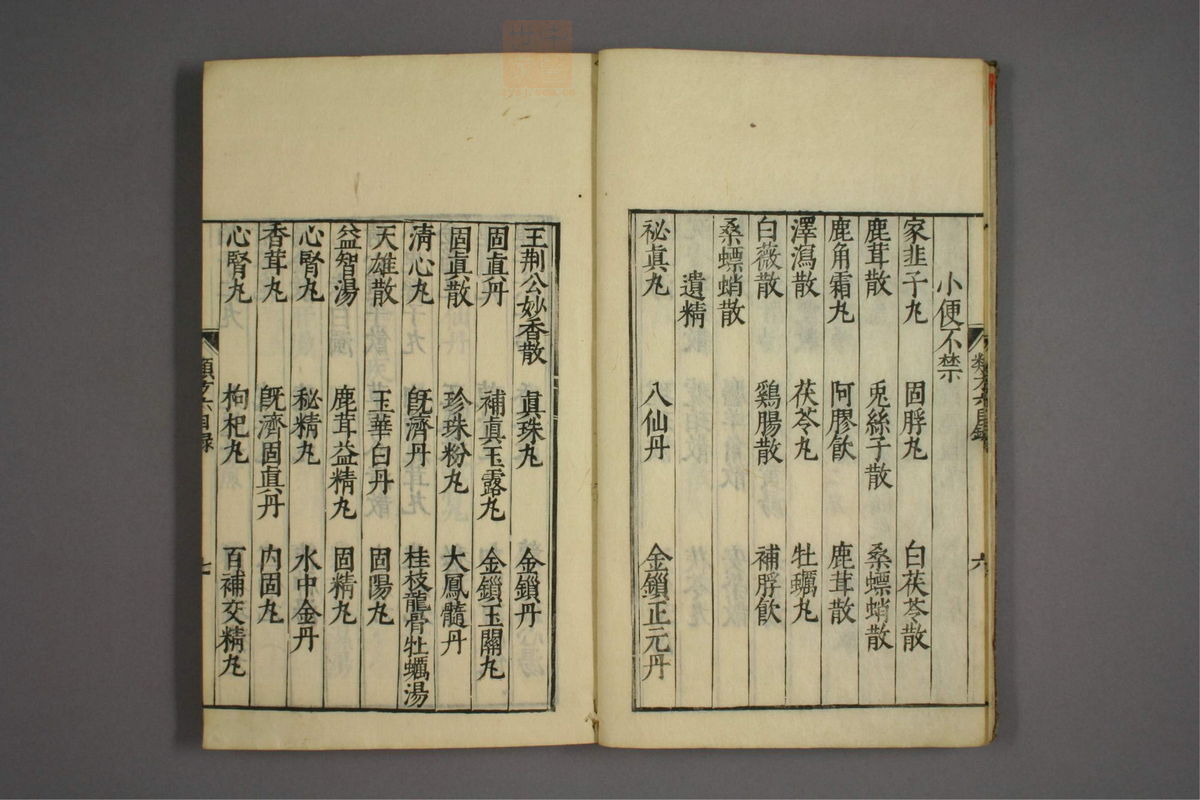 小便不禁
家韭子丸 固脬丸 白茯苓散
鹿茸散 兎絲子散 桑螵蛸散
鹿角霜丸 阿膠飲 鹿茸散
澤瀉散 茯苓丸 牡蠣丸
白薇散 鷄腸散 補脬飲
桑螵蛸散
遺精
祕眞丸 八仙丹 金鎖正元丹
類方六目錄 六
王荆公妙香散 眞珠丸 金鎖丹
固眞丹 補眞玉露丸 金鎖玉關丸
固眞散 珍珠粉丸 大鳳髓丹
清心丸 旣濟丹 桂枝龍骨牡蠣湯
天雄散 玉華白丹 固陽丸
益智湯 鹿茸益精丸 固精丸
心腎丸 秘精丸 水中金丹
香茸丸 旣濟固眞丹 内固丸
心腎丸 枸杞丸 百補交精丸
類方六目錄 七